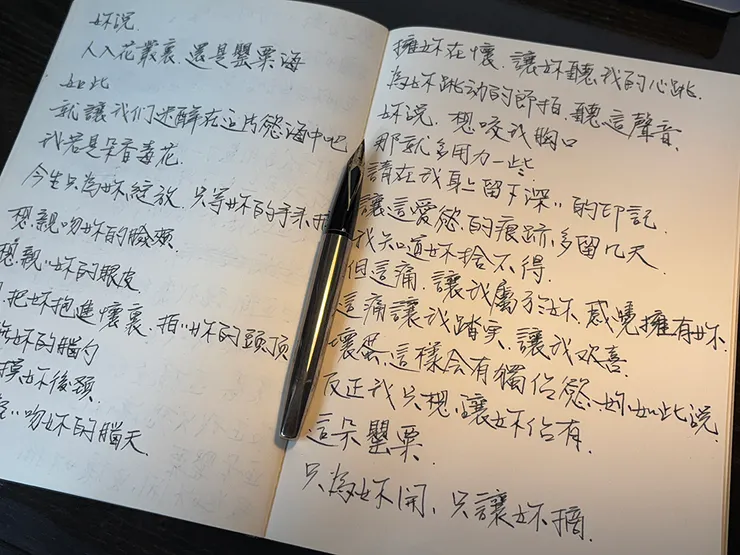 妳说.
人入花叢裏.還是罌粟海
如此
就讓我们迷醉在这片慾海中吧
我若是朵香毒花
今生只為妳綻放.只等妳的手来摘
想親吻妳的臉頰
想親〃妳的眼皮
把妳抱進懷裏.拍〃妳的頭顶
妳的腦勺
摸妳後頸
吻妳的腦天.
擁妳在懷.讓妳聽我的心跳.
為妳跳动的節拍.聽這聲音.
妳说.想咬我胸口
那就多用力一些.
請在我身上留下深〃的印記.
讓這愛慾的痕跡多留几天
我知道妳捨不得.
但這痛.讓我屬於妳.感覺擁有妳.
這痛讓我踏实.讓我欢喜.
壞蛋.這樣会有獨佔慾.妳如此说.
反正我只想.讓妳佔有.
這朵罌粟.
只為妳開.只讓妳摘.